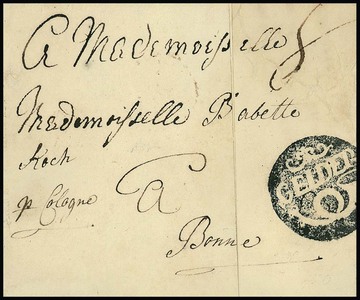 A Mademoiselle
Mademoiselle Babette
Koch
p Cologne
A
Bonne
GELDER